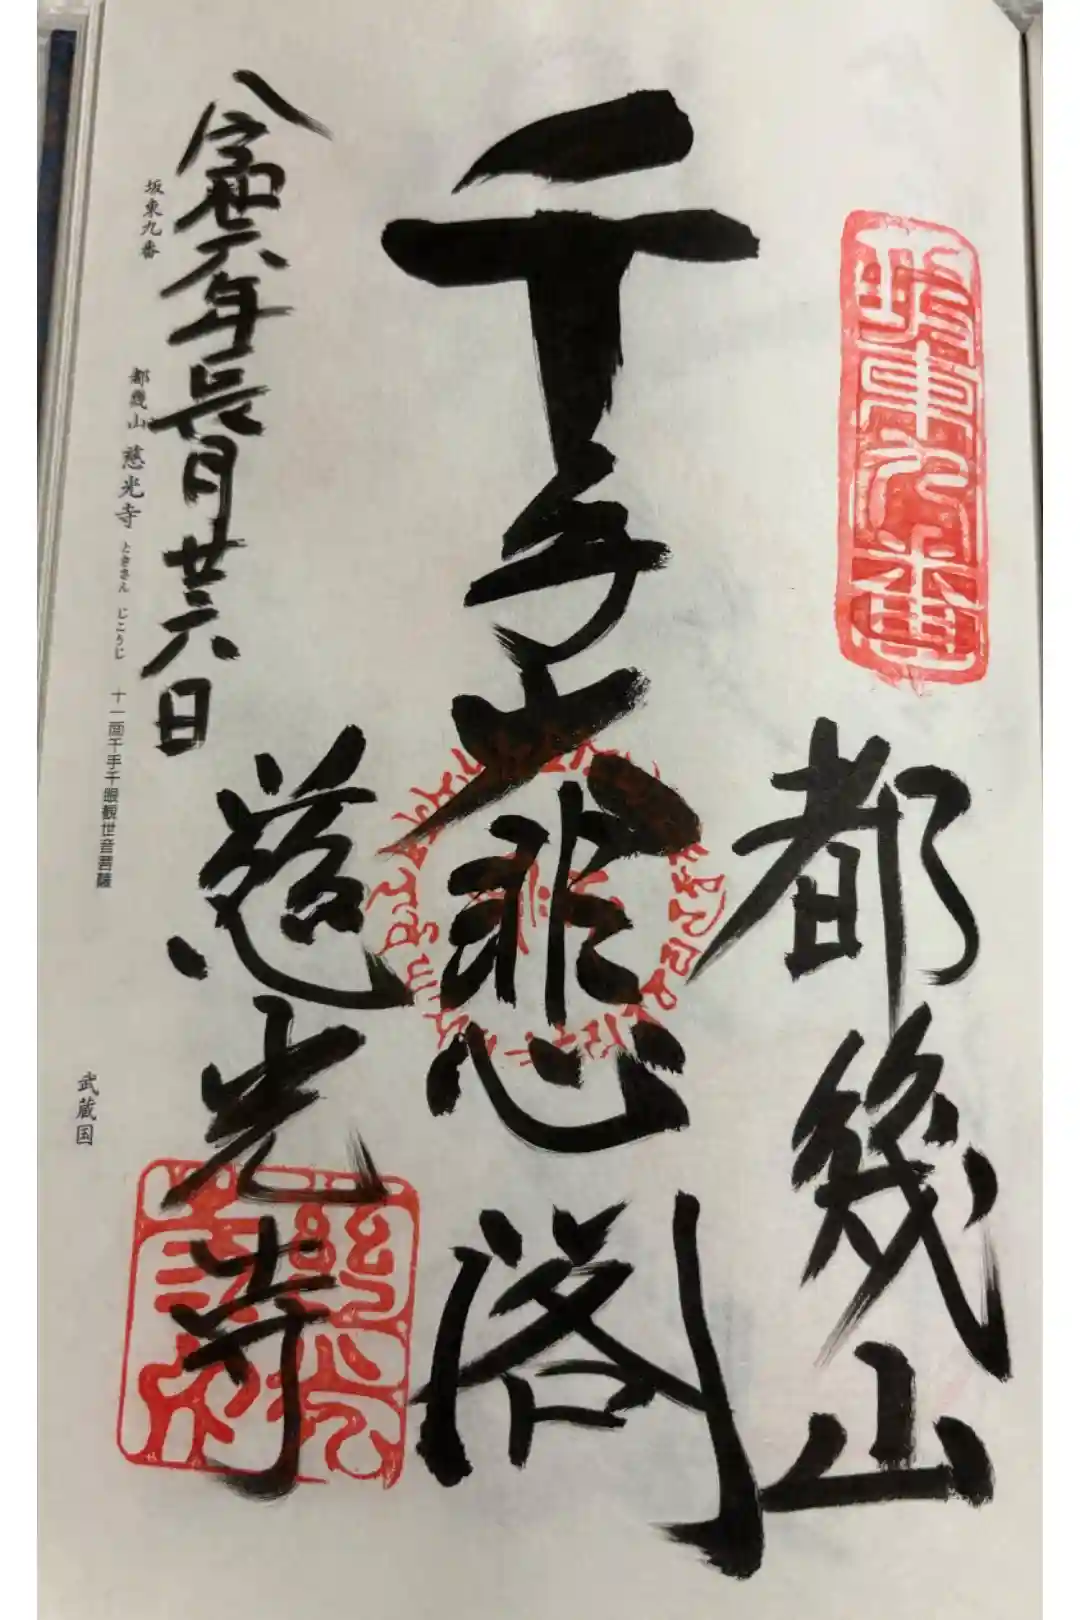 坂東九番
都幾山
千手大悲閣
慈光寺
令和六年長月廿六日
坂東九番
都幾山 慈光寺 ときさん じこうじ 十一面千手千眼観世音菩薩
武蔵国